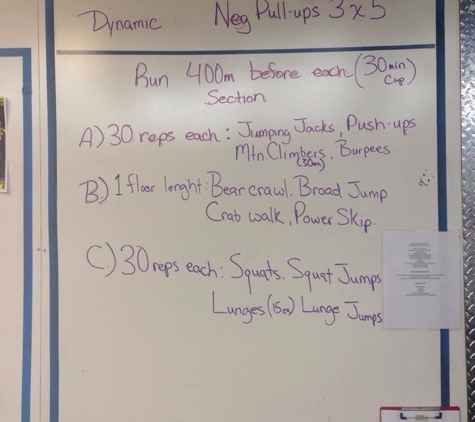 Dynamic Neg Pull-ups 3x5
Run 400m before each (30min Cap)
Section
A) 30 reps each: Jumping Jacks, Push-ups
Mtn. Climbers, Burpees
(30ea)
B) 1 floor lenght: Bear crawl. Broad Jump
Crab walk, Power Skip.
C) 30 reps each: Squats. Squat Jumps
Lunges (15ea) Lunge Jumps